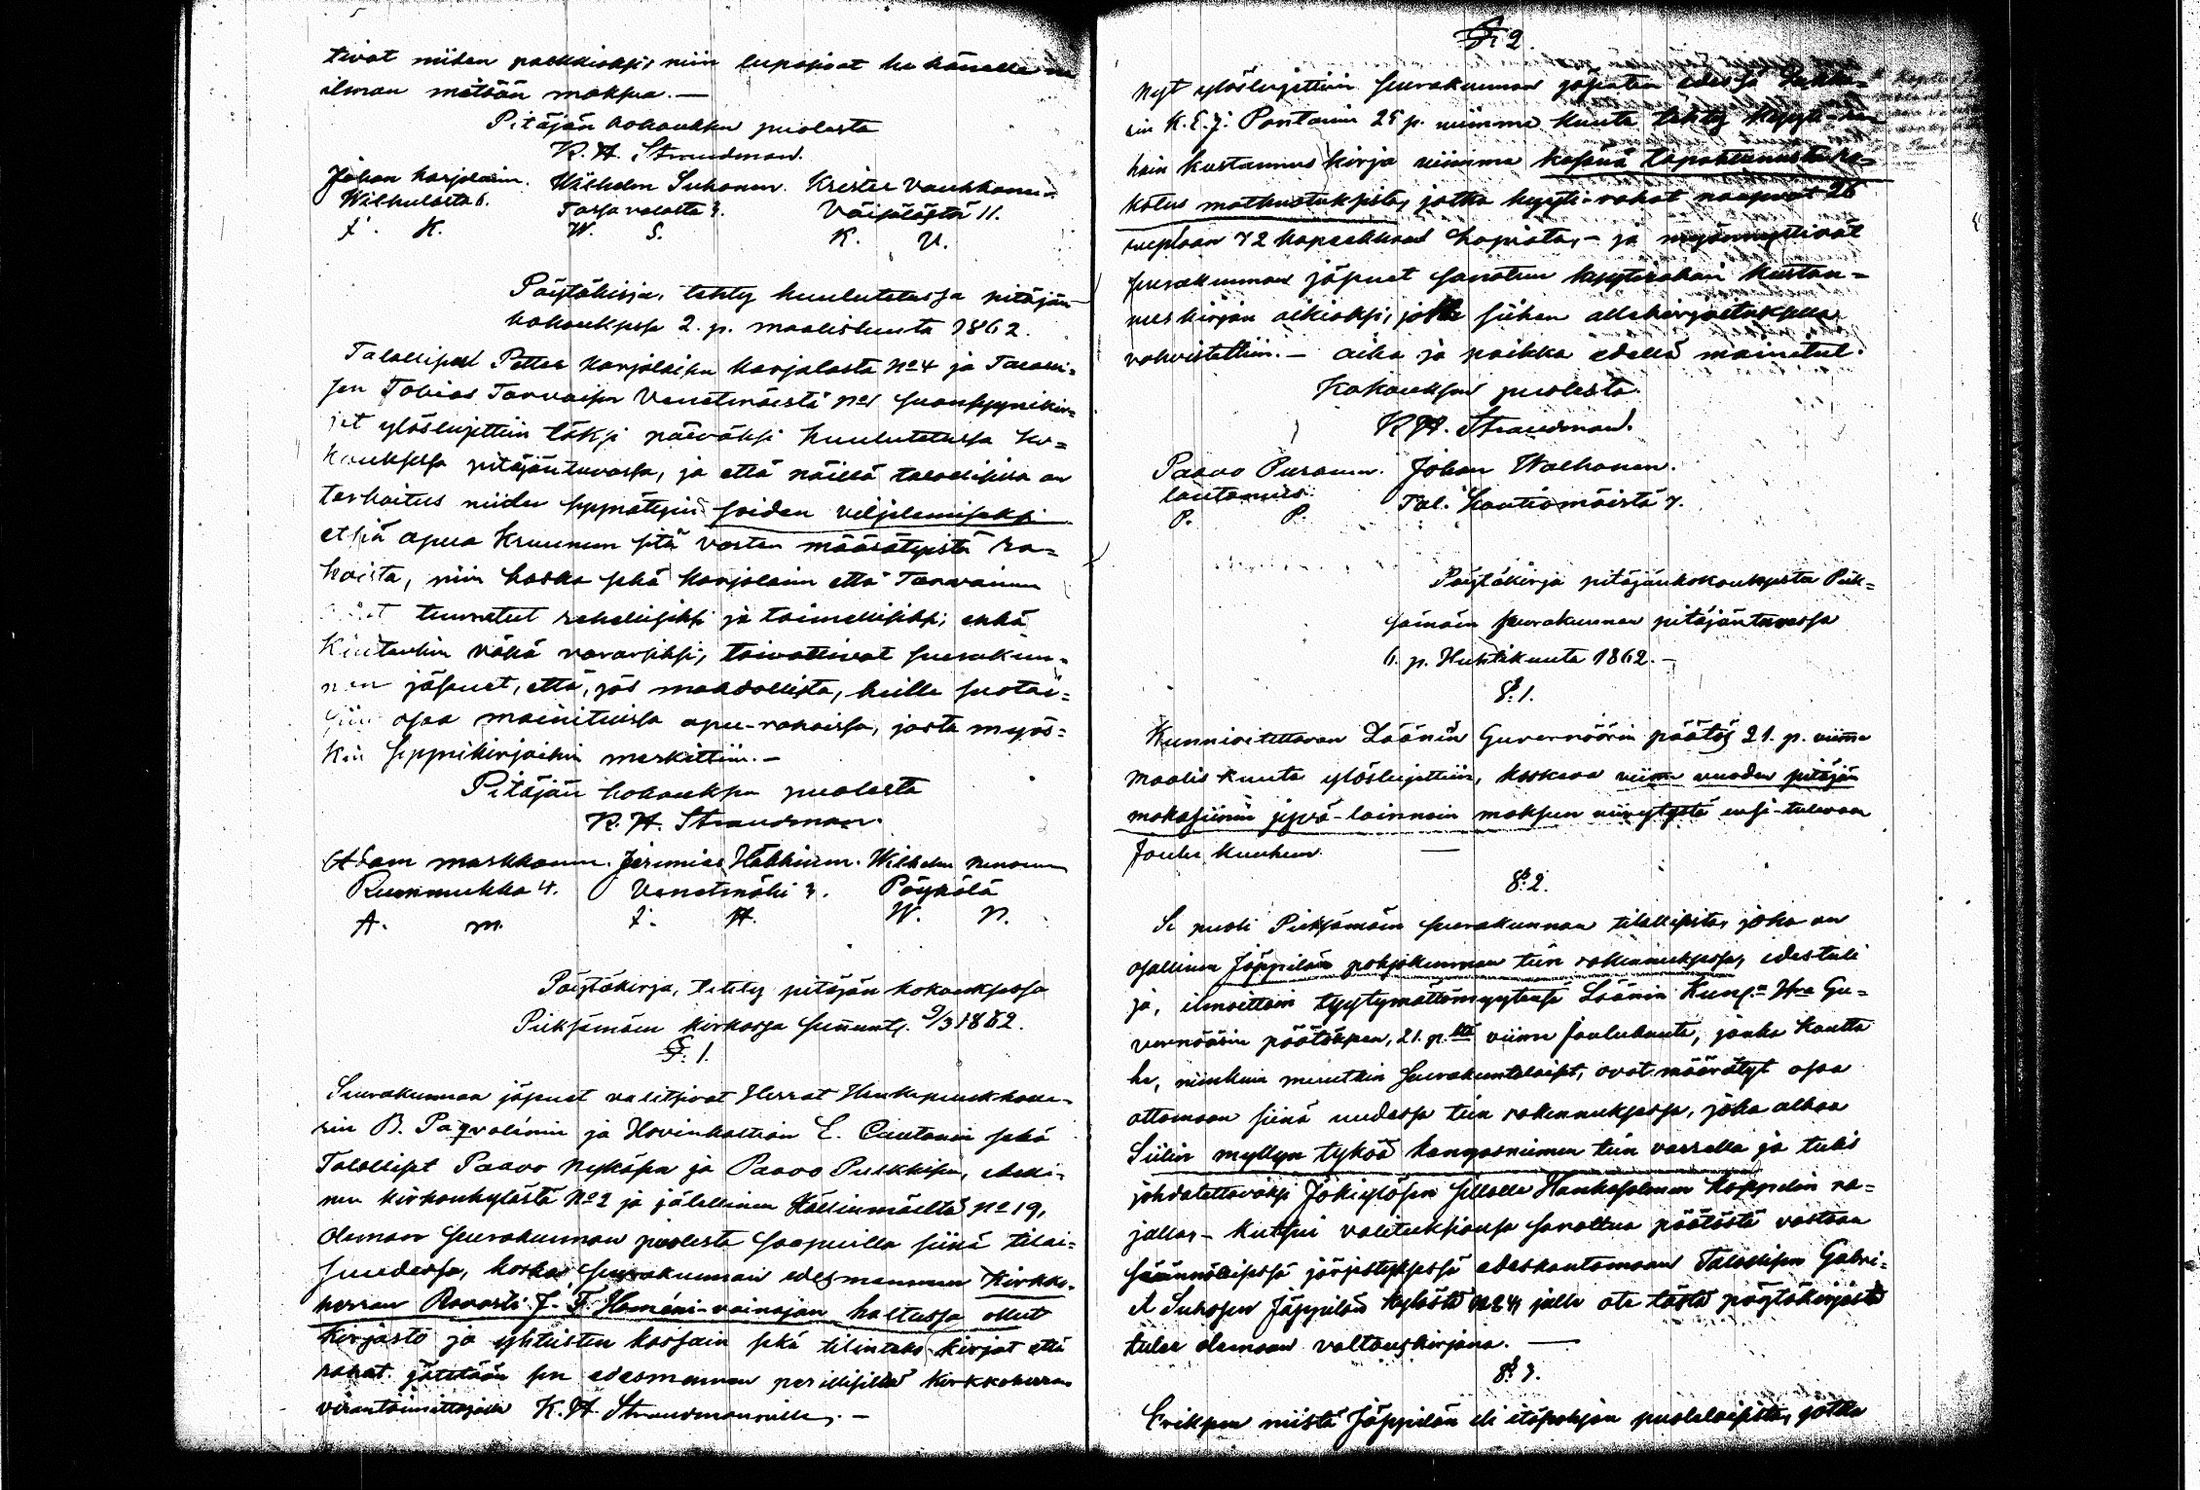 tivat niiden palkkioksi, niin lupasivat he hänelle
ilman mitään maksua. —
Pitäjän kokouksen puolesta
K. H. Strandman.
Johan Karjolain. Wilhelm Suhonen. Krister Vauhkonen
Wilhulasta 6. Tarsavalasta 3. Väisälästä 11.
J. K. W. S. K. V.
Pöytäkirja, tehty kuulutetussa pitäjän-
kokouksessa 2. p. maaliskuuta 1862.
Talolliset Petter Karjalaisen Karjalasta No 4 ja Talolli-
sen Tobias Tarvaisen Venetmäestä No 1 suonsyynikir-
jat ylösluettiin täksi päiväksi kuulutetussa ko-
kouksessa pitäjäntuvassa, ja että näillä talollisilla on
tarkoitus niiden syynättyin soiden viljelemiseksi
etsiä apua Kruunun sitä varten määrätyistä ra-
hoista, niin koska sekä Karjolain että Tarvainen
tunnetut rehellisiksi ja toimellisiksi, ehkä
kuitenkin vähä varasiksi, toivottivat seurakun-
nan jäsenet, että, jos mahdollista, heille suotai-
siin osaa mainituissa apu-rahoissa, josta myös-
kin syynikirjoihin merkittiin. —
Pitäjän kokouksen puolesta
K. H. Strandman.
Adam Markkanen. Jeremias Häkkinen. Wilhelm
Rummukka 4. Venetmäki 3. Pöyhölä
A. M. J. H. W. N.
Pöytäkirja, tehty pitäjän kokouksessa
Pieksämäen kirkossa sununt. 9/3 1862.
§. 1.
Seurakunnan jäsenet valitsivat Herrat
B. Paqvalinin ja Hovinhaltian E. Cautonin sekä
Talolliset Paavo Nykäsen ja Paavo Pulkkisen, edelli-
nen kirkonkylästä No 2 ja jälellinen Hällinmäeltä No 19,
olemaan seurakunnan puolesta saapuvilla siinä tilai-
suudessa, koska seurakunnan edesmennen Kirkko-
herran Rovasti J. F. vainajan haltussa ollut
kirjasto ja yhteisten kassain sekä tilinteko-kirjat että
rahat jätetään sen edesmennen perillisiltä kirkkoherran
virantoimittajalle K. H. Strandmanille. —
§ 2.
Nyt ylösluettiin seurakunnan jäsenten edessä
K. E. J. Pontanin 25 p. viimme kuuta tehty kyyti-
hain kustannus kirja viimme
matkustuksista, jotka kyyti-rahat nousevat 26
ruplaan 72 kopeekkaan hopiata, — ja myönnyttivät
seurakunnan jäsenet sanotun kyytirahain kustan-
nus kirjan oikiaksi, joka siihen allekirjoituksella
vahvistettiin. — Aika ja paikka edellä mainitut.
Kokouksen puolesta
K. H. Strandman.
Paavo Puranen. Johan Walkonen.
lautamies. Tal. Hautiomäistä 7.
P. P.
Pöytäkirja pitäjänkokouksesta Piek-
sämäen seurakunnan pitäjäntuvassa
6. p. Huhtikuuta 1862. —
§. 1.
Kunnioitettavan Läänin Guvernöörin päätös 21. p. viime
Maaliskuuta ylösluettiin, koskeva viime vuoden pitäjän
makasiinin jyvä-lainnain maksun viivytystä ensi-tulevaan
Joulu kuuhun. —
§. 2.
Se puoli Pieksämäen seurakunnan tilallisista, joka on
osallinen Jäppilän pohjakunnan tien rakennuksessa, edestuli
ja, ilmoittain tyytymättömyytensä Läänin Kung:n Hra Gu-
vernöörin päätöksen, 21. p:ltä viime Joulukuuta, jonka kautta
he, niinkuin muutkin seurakuntalaiset, ovat määrätyt osaa
ottamaan siinä uudessa tien rakennuksessa, joka alkaa
Siilin myllyn tyköä Kangasniemen tien varrella ja tulis
johdatettavaksi Jokiylösen sillalle Hankasalmen kappelin ra-
jallas — kutsui valituksiansa sanottua päätöstä vastaan
säännöllisessä järjestyksessä edeskantamaan Talollisen Gabri-
el Suhosen Jäppilän kylästä No 24, jolle ote tästä pöytäkirjasta
tulee olemaan valtauskirjana. —
§ 3.
Eriksen niistä Jäppilän eli itäpohjan puolelaisista, jotka